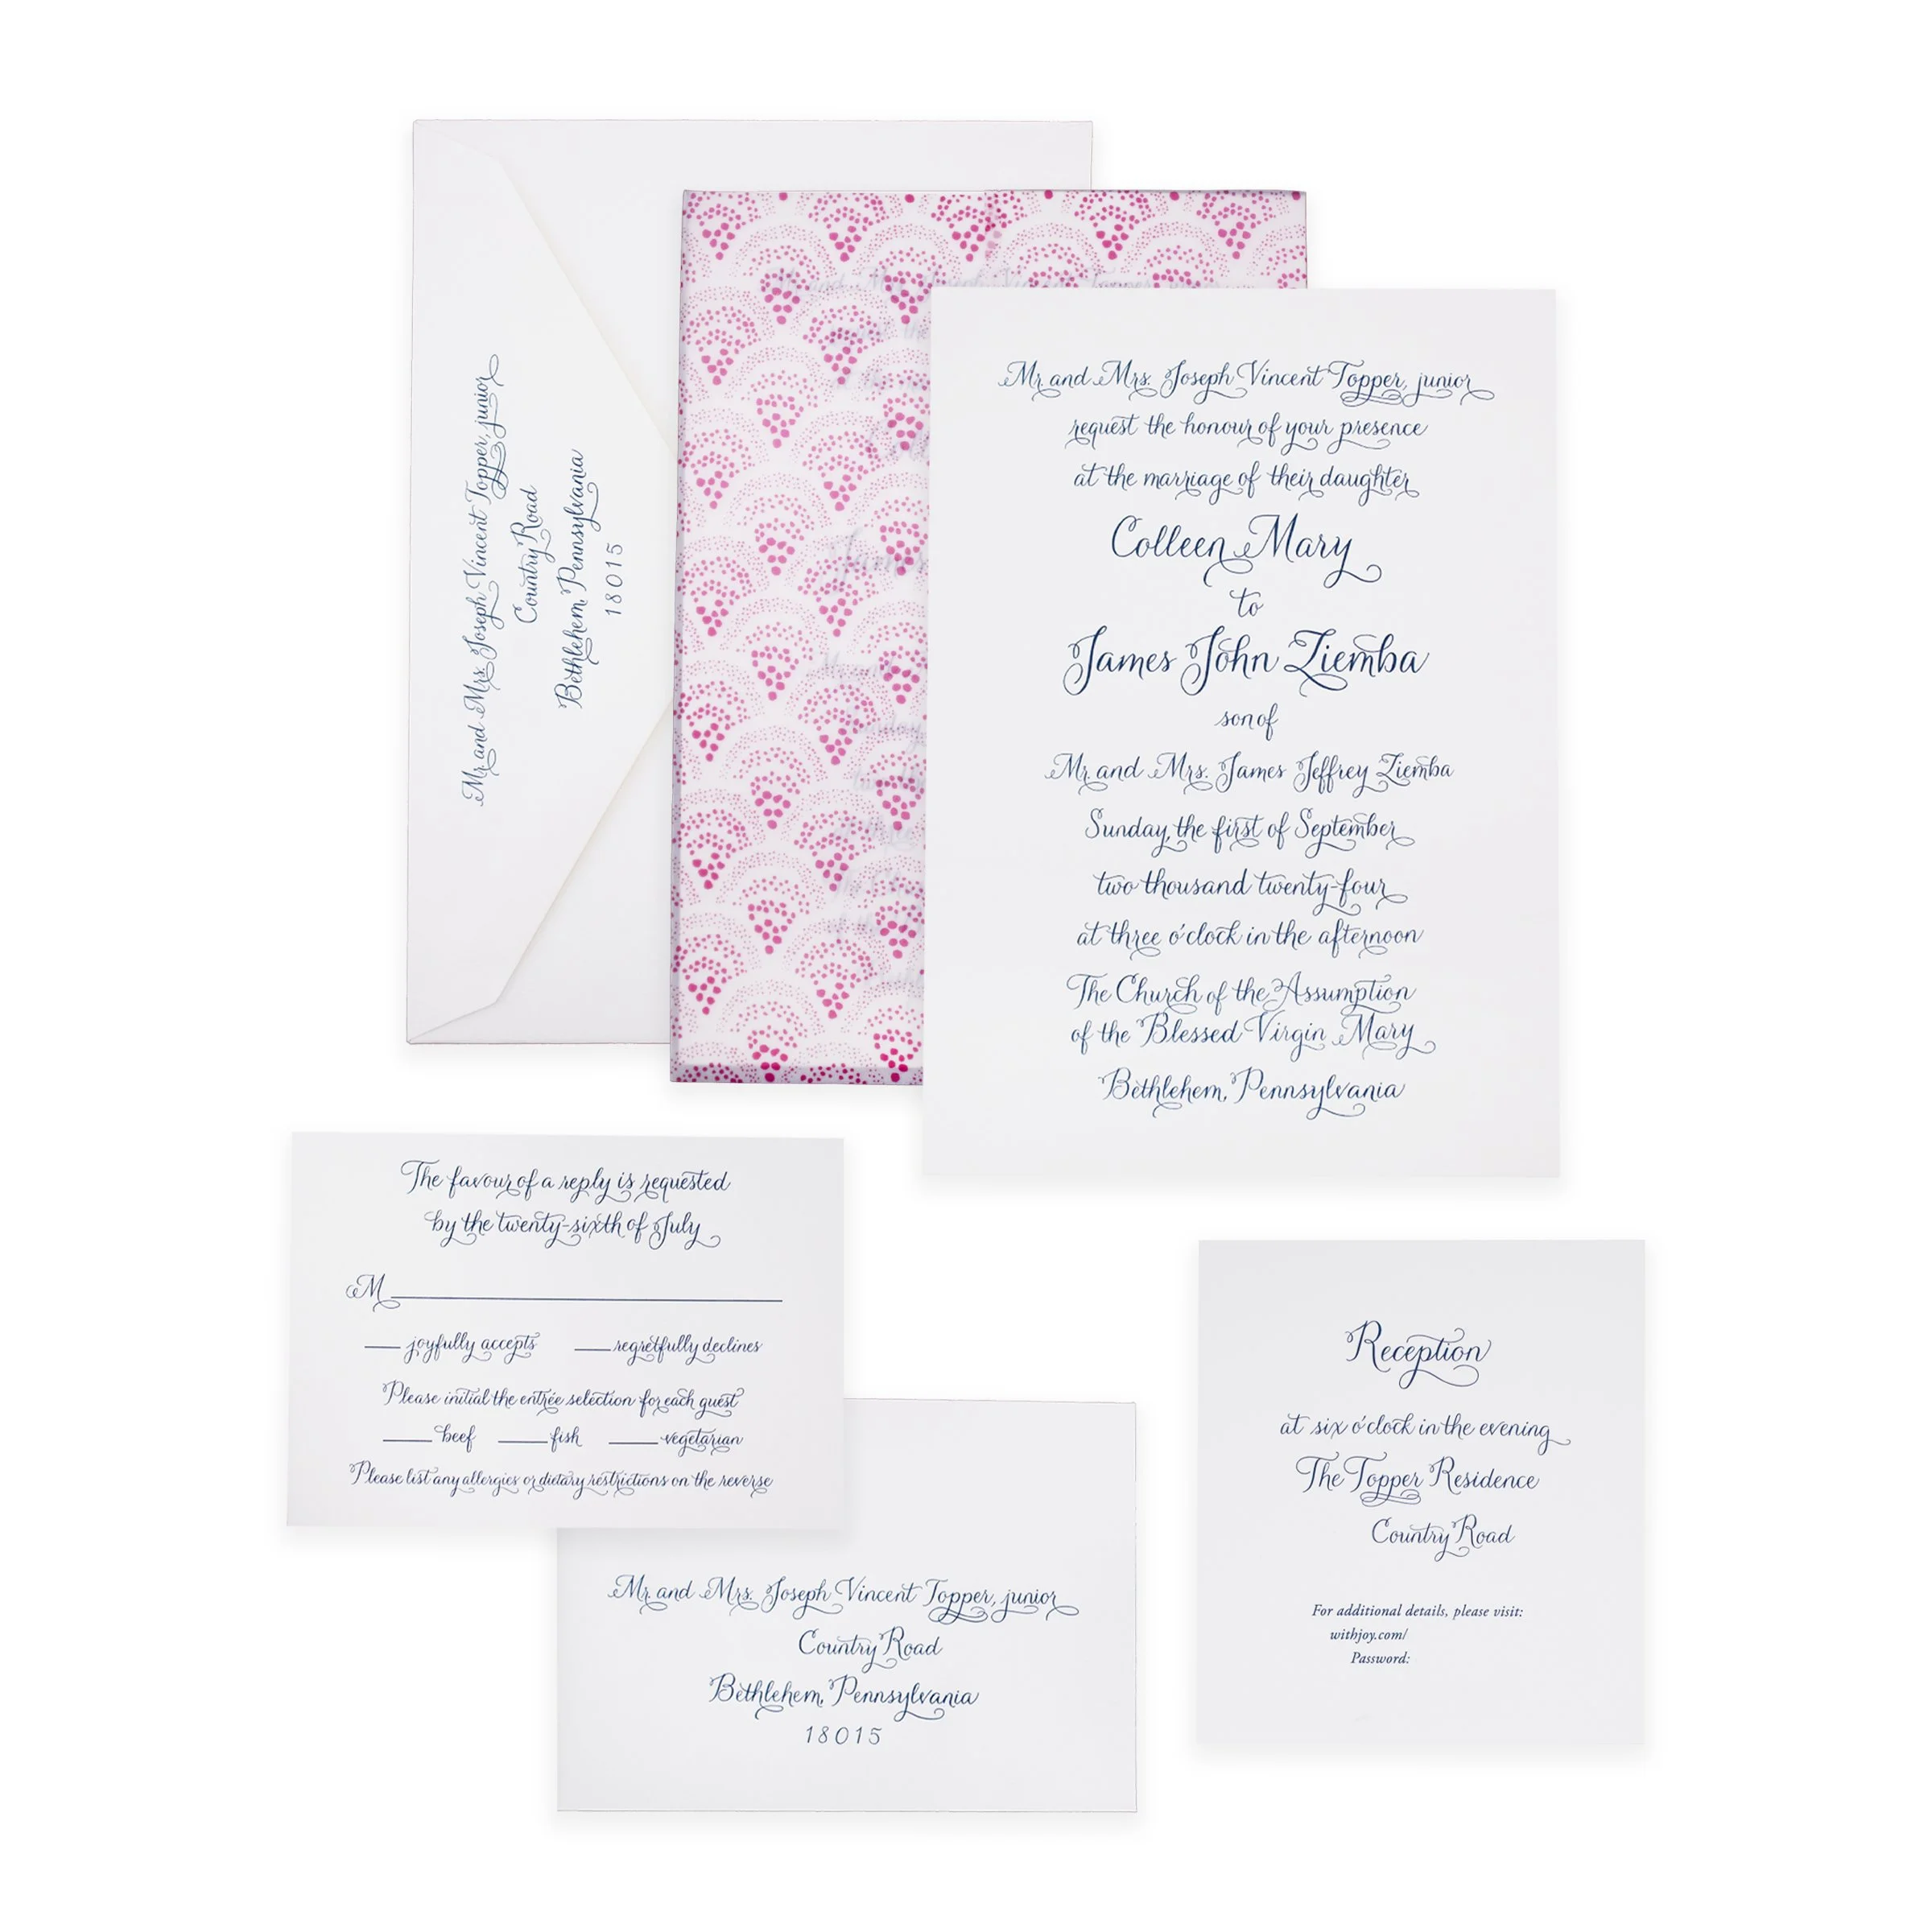 Mr. and Mrs. Joseph Vincent Topper, junior
Country Road
Bethlehem, Pennsylvania
18015
Mr. and Mrs. Joseph Vincent Topper, junior
request the honour of your presence
at the marriage of their daughter
Colleen Mary
to
James John Ziemba
son of
Mr. and Mrs. James Jeffrey Ziemba
Sunday, the first of September
two thousand twenty-four
at three o'clock in the afternoon
The Church of the Assumption
of the Blessed Virgin Mary
Bethlehem, Pennsylvania
The favour of a reply is requested
by the twenty-sixth of July
M
joyfully accepts regretfully declines
Please initial the entrée selection for each guest
beef fish vegetarian
Please list any allergies or dietary restrictions on the reverse
Mr. and Mrs. Joseph Vincent Topper, junior
Country Road
Bethlehem, Pennsylvania
18015
Reception
at six o'clock in the evening
The Topper Residence
Country Road
For additional details, please visit:
withjoy.com/
Password: